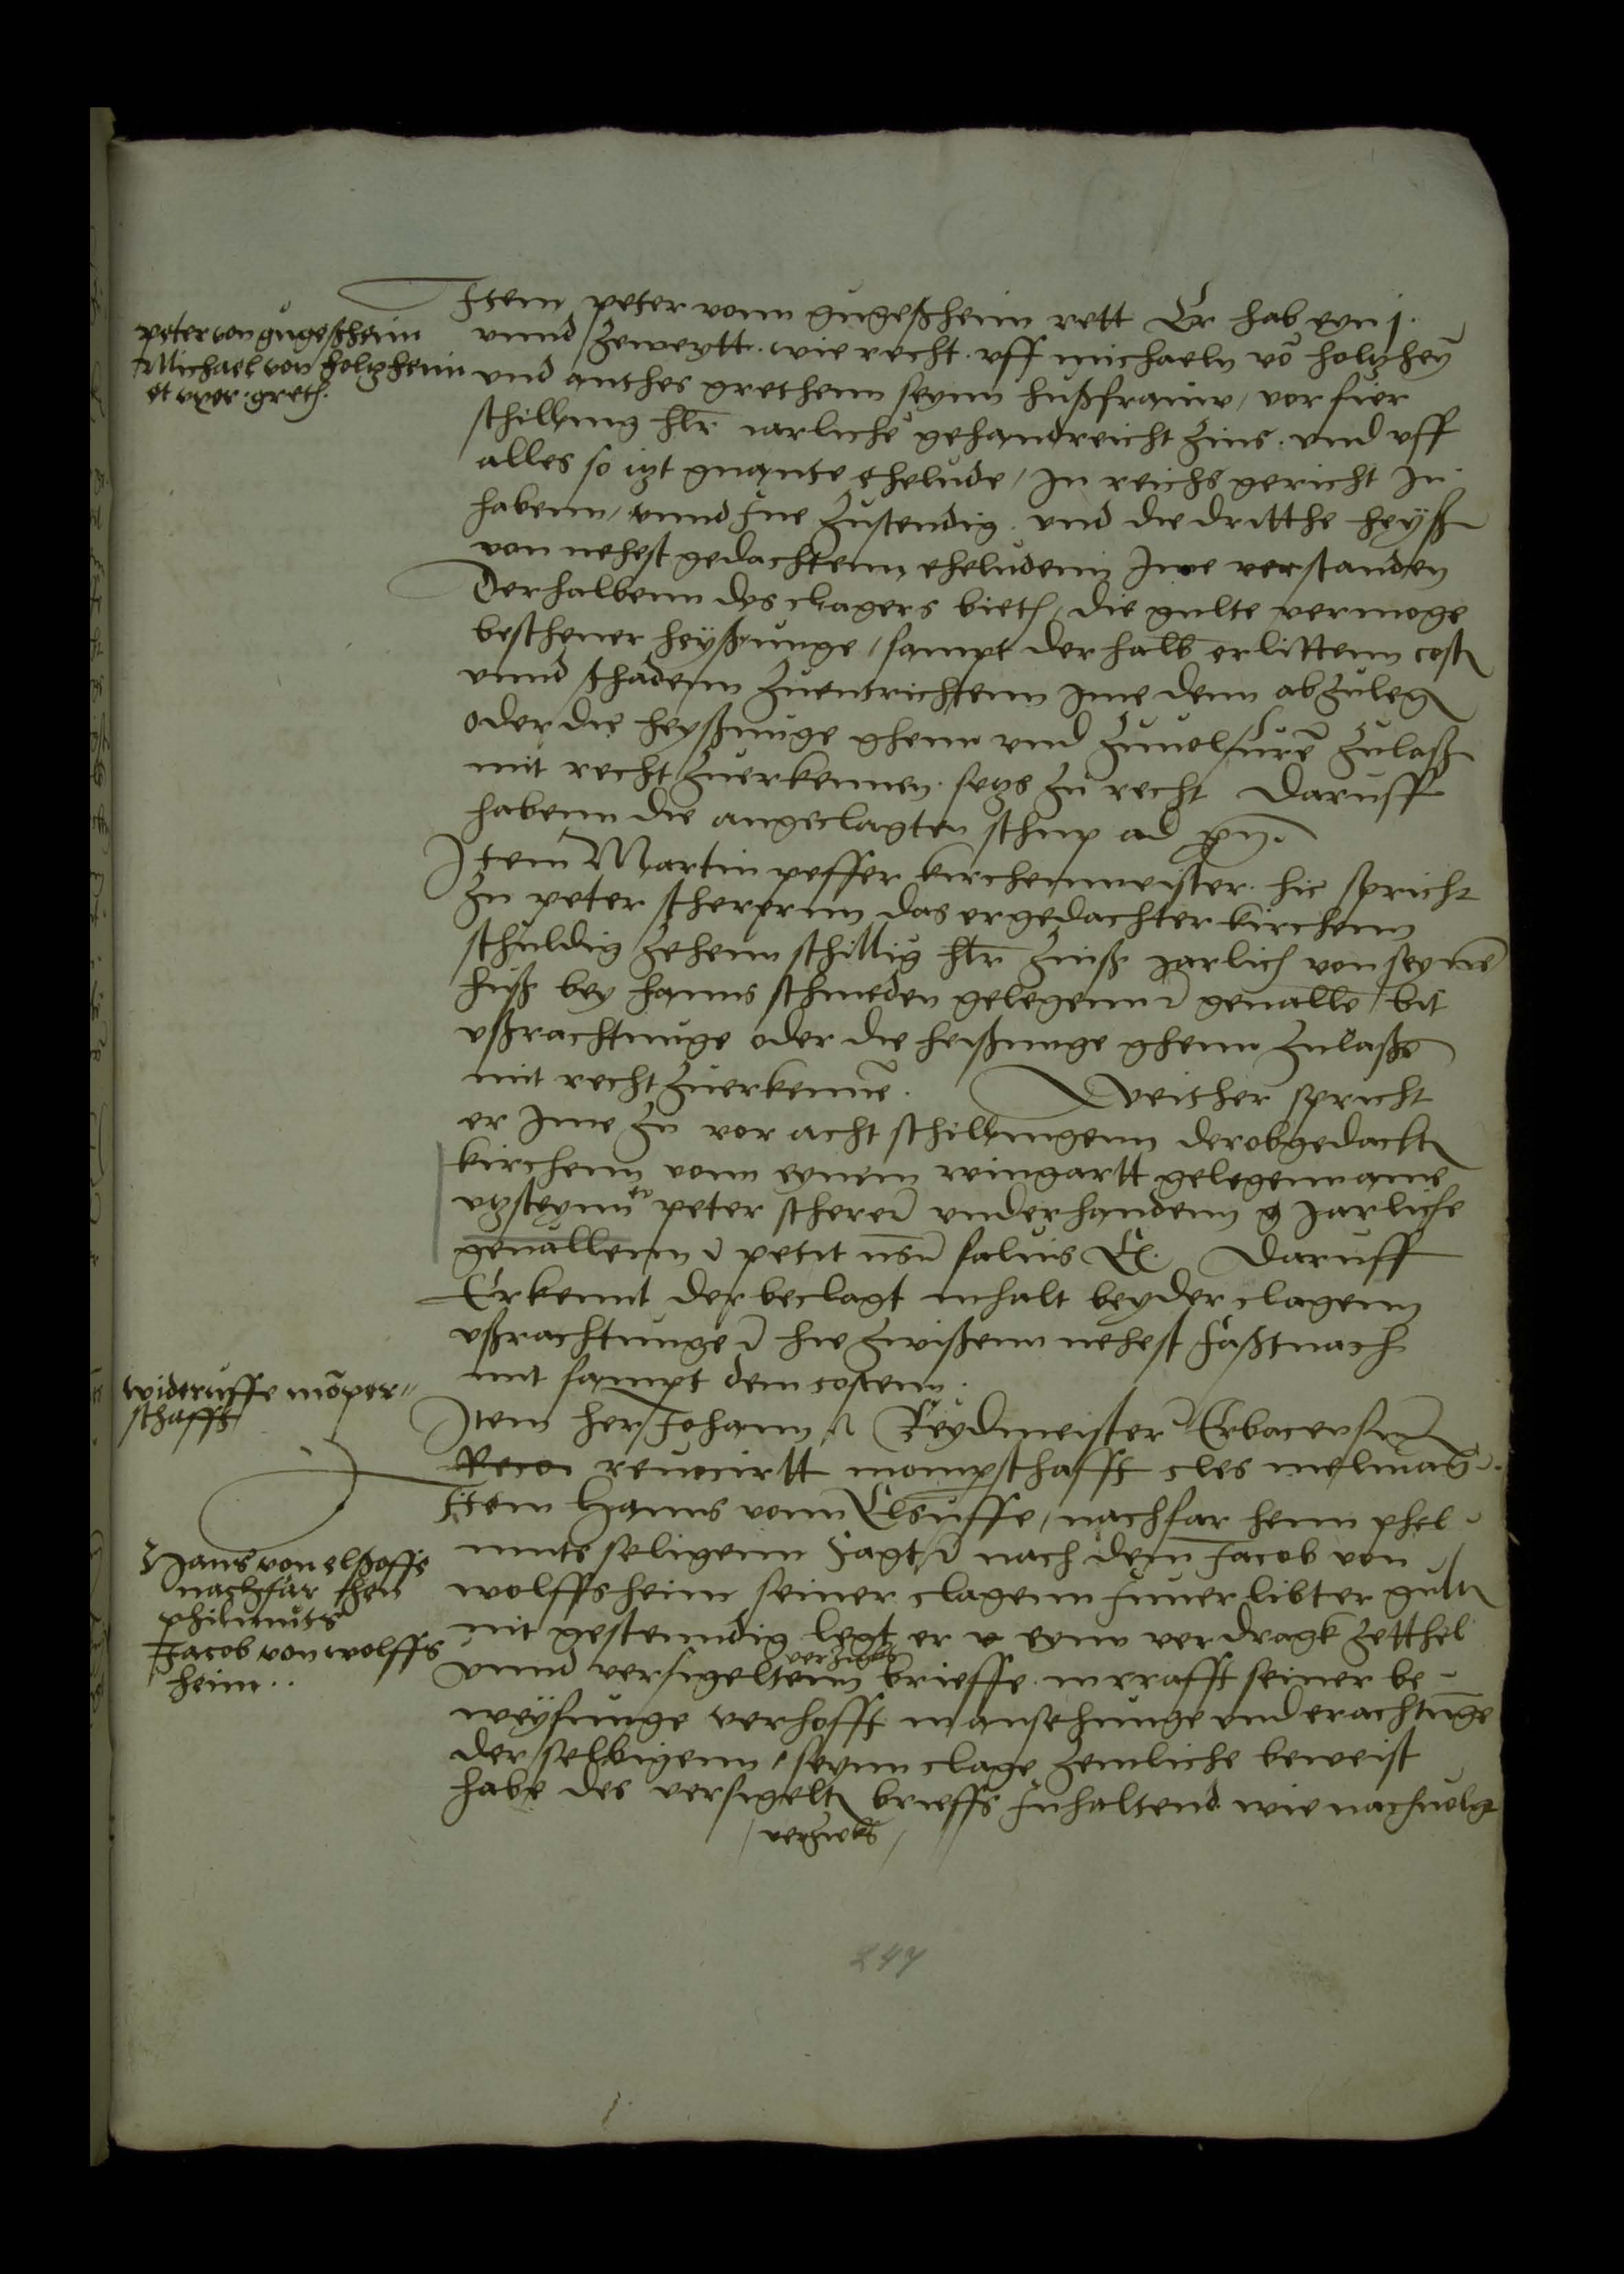 peter von gugeßheim
Michael von holtzheim
et vxor greth.
Item peter vonn gugeßheim rett Er hab eyn j.
vnnd zeweytt. wie recht. vff michaeln vō holtzheỹ
vnd anthes grethenn seynn hußfrauw, vor fier
schilling hlr iarliche gehandreicht zins. vnd vff
alles so itzt gnante ehelude, In reichs gericht In
habenn, vnnd Ine zustendig. vnd die dritthe heyß
von nehest gedachtenn eheludenn Ime verstanden
Derhalbenn dys clagers bieth, die gulte vermoge
beschener heyßunge, sampt der halb erlittenn cost
vnnd schadenn zuentrichtenn Ime denn abzuleg
oder die heyßunge ghenn vnd zuuolfurē zulaß
mit recht zuerkennen. setzs zu recht Daruff
habenn die angeclagten schup ad
Item Martin peffer kirchenmeister. hic spricht
zu peter scherernn das er gedachter kirchenn
schuldig zehenn schillig hlr zinß jarlich von seynē
huß bey hanns schmeden gelegenn genalle, bit
vßrachtunge oder die heißunge ghenn zulaßē
mit recht zuerkennē. Weither spricht
er Ime zu vor acht schillingenn der obgedacht
kirchenn vonn eynem wingartt gelegenn ame
vtzsteynn peter scherer vnderhandenn jarliche
genallenn petit salvis Ex. Daruff
Erkennt der beclagt inhalt beyder clagenn
vßrachtunge hie zwißenn nehest faßtnach
mit sampt dem costenn.
widerūffe mōper
schafft
Item her Johann Keydmeister Erbacensium
Reco reuocirtt mompschafft cles melman.
Hans von elßoffe
nachfar hen
philmuts
Jacob von wolffs
heim..
Item Hanns vonn Elsuffe, nachfar henn phel
muts seligenn sagt nach dem Jacob von
wolffsheim seiner clagenn Inuerlibter gult
nit gestenndig legt er v eynn verdragk zetthel
verzigks
vnnd versigeltenn brieffe. in crafft seiner be
weysunge verhofft in ansehunge vnd erachtunge
der selbigenn, seynn clage zemliche beweist
habe des versigelt brieffs Inhaltend wie nachuolgt
verzigks
247